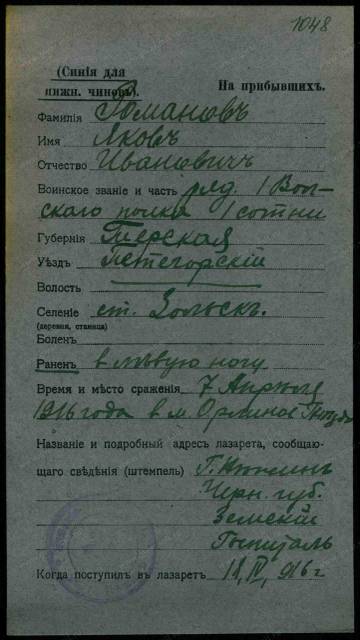 1048
(Синія для
нижн. чиновъ)
На прибывшихъ.
Фамилія Романовъ
Имя Яковъ
Отчество Ивановичъ
Воинское званіе и часть ряд. 1 Вол-
скаго полка 1 сотни
Губернія Терская
Уѣздъ Петегорскій
Волость
Селеніе ст. Зольск.
(деревня, станица)
Боленъ
Раненъ в лѣвую ногу
Время и мѣсто сраженія 7 Апрѣля
1916 года в м. Орлиное Гнездо
Названіе и подробный адресъ лазарета, сообщаю-
щаго свѣдѣнія (штемпель) Г. Нѣжинъ
Черн. губ.
Земскій
Госпиталь
Когда поступилъ въ лазаретъ 18, IV, 916 г.